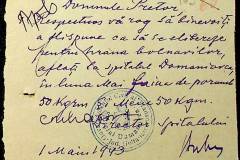 Domnule Pretor
Respectuos vă rog să binevoiți
a dispune ca să se elibereze
pentru hrana bolnavilor,
aflați la spitalul Domanevca,
în luna Mai faina de porumb
50 Kgrm Meiu 50 Kgm.
Director Spitalului
1 Maiu 1943